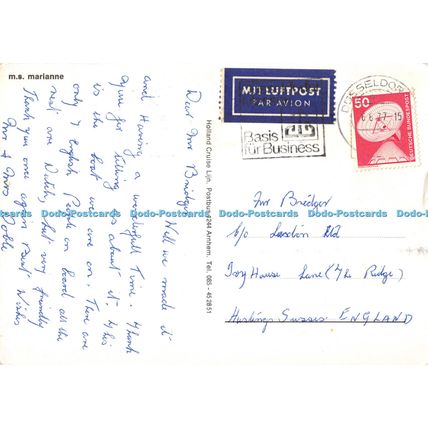 m.s. marianne
Dear Mr Bridger
Well we made it
and Having a wonderfull Time. Thank
you for telling us about it. This
is the boat we are on. There are
only 7 English People on board all the
rest are Dutch, but very friendly
Thank you once again Best Wishes
Mr & Mrs
Holland Cruise Lijn, Postbus 2244 Arnhem. Tel. 085 - 452851
MIT LUFTPOST
PAR AVION
Basis
für Business
DÜSSELDORF
6.77-15
50
DEUTSCHE BUNDESPOST
Mr Bridger
c/o Ltd
Ivy House Lane (The Ridge)
Hastings Sussex ENGLAND
Dodo-Postcards Dodo-Postcards Dodo-Postcards Dodo-Postcards Dodo-Postcards